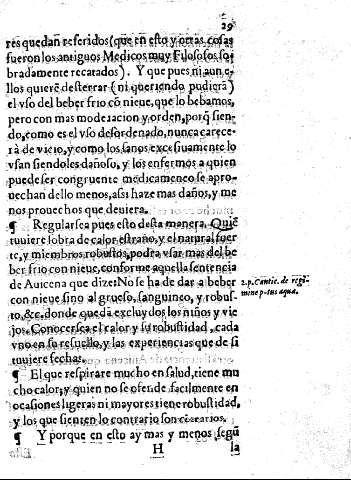 29
res quedan referidos (que en esto y otras cosas
fueron los antiguos Medicos muy Filosofos so
bradamente recatados). Y que pues ni aun e-
llos quierẽ desterrar (ni queriendo pudierã)
el vso del beber frio cõ nieue, que lo bebamos,
pero con mas moderacion y orden, porq̃ sien-
do, como es el vso desordenado, nunca carece-
rà de vicio, y como los sanos excessiuamente lo
vsan siendoles dañoso, y los enfermos a quien
puede ser congruente medicamento se apro-
uechan dello menos, assi haze mas daños, y me
nos prouechos que deuiera.
¶ Regularsea pues esto desta manera. Quiẽ
tuuiere sobra de calor estraño, y el natural fuer
te, y miembros robustos, podra vsar mas del be
ber frio con nieue, conforme aquella sentencia
de Auicena que dize: No se ha de dar a beber
con nieue sino al grueso, sanguineo, y robus-
to, &c, donde quedã excluydos los niños y vie
jos. Conocersea el calor y su robustidad, cada
vno en so resuello, y las experiencias que de si
tuuiere fechas.
2.p. Cantic. de regi-
mine potus aquæ.
¶ El que respirare mucho en salud, tiene mu
cho calor; y quien no se ofende facilmente en
ocasiones ligeras ni mayores tiene robustidad,
y los que sienten lo contrario son contrarios.
¶ Y porque en esto ay mas y menos, segũ
H la